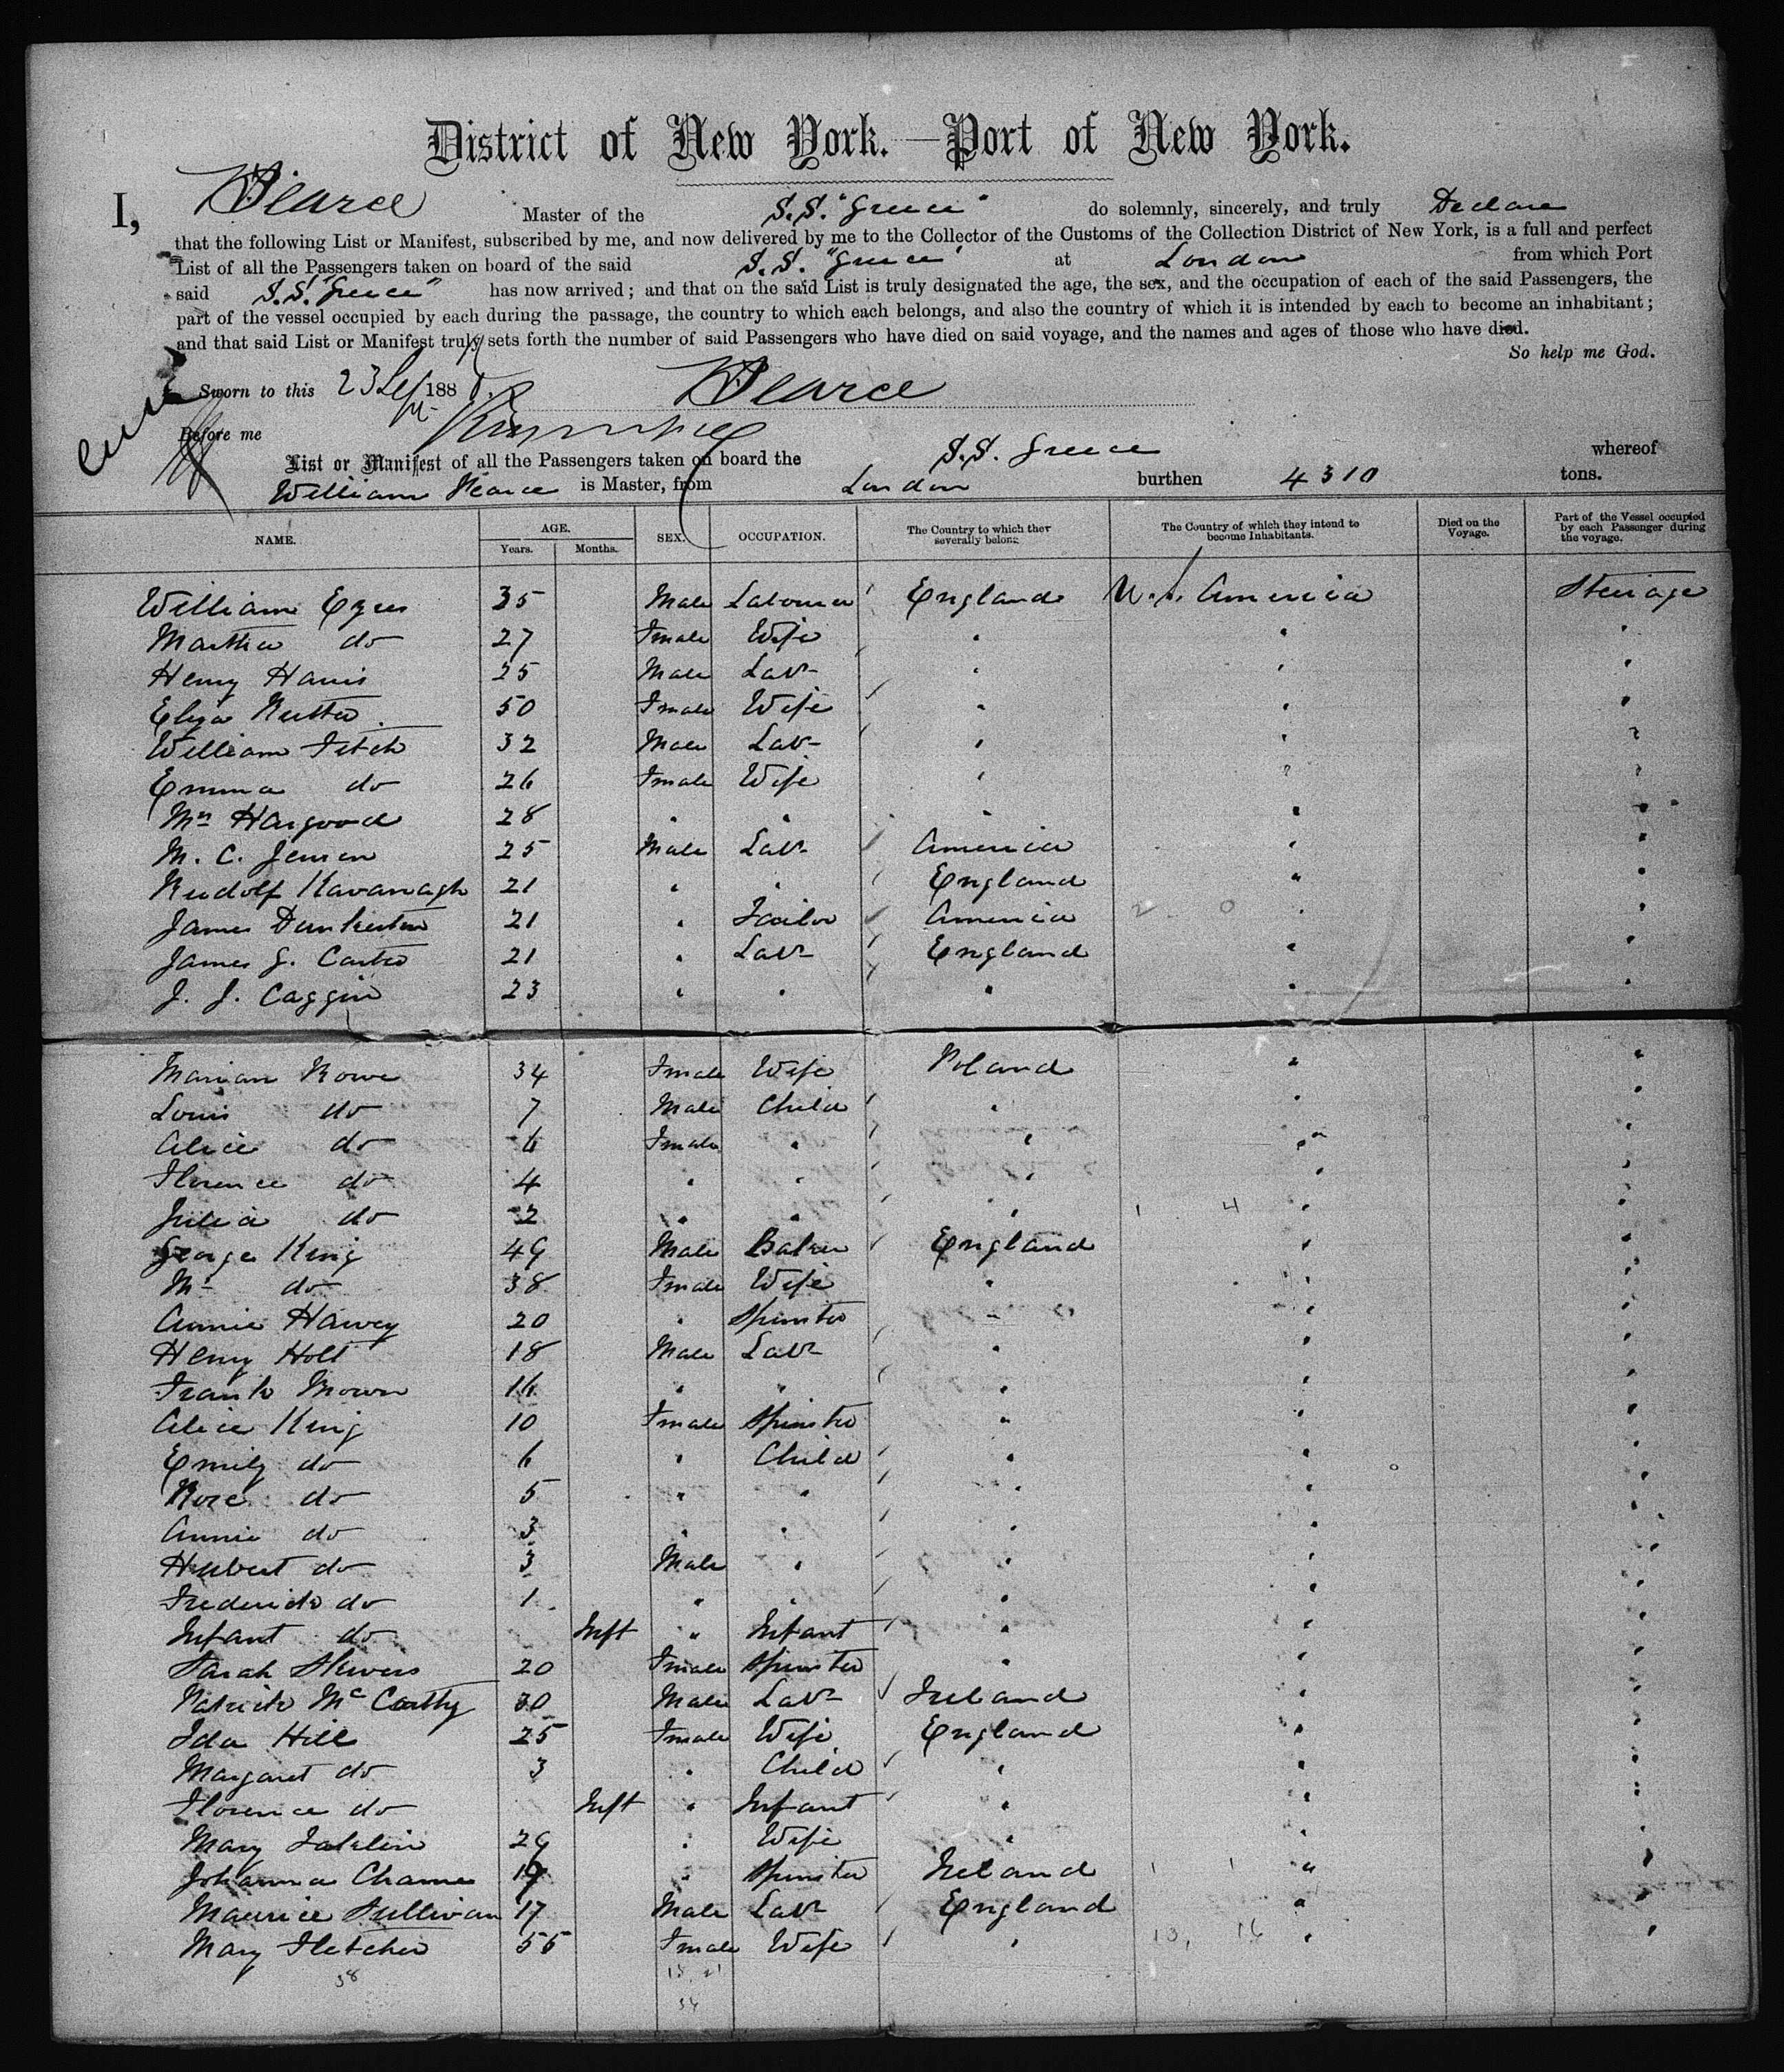 District of New York.—Port of New York.
I, W Pearce Master of the S.S. "Greece" do solemnly, sincerely, and truly Declare
that the following List or Manifest, subscribed by me, and now delivered by me to the Collector of the Customs of the Collection District of New York, is a full and perfect
List of all the Passengers taken on board of the said S.S. "Greece" at London from which Port
said S.S. "Greece" has now arrived; and that on the said List is truly designated the age, the sex, and the occupation of each of the said Passengers, the
part of the vessel occupied by each during the passage, the country to which each belongs, and also the country of which it is intended by each to become an inhabitant;
and that said List or Manifest truly sets forth the number of said Passengers who have died on said voyage, and the names and ages of those who have died.
So help me God.
Sworn to this 23 Sept 188 W Pearce
Before me
List or Manifest of all the Passengers taken on board the S.S. Greece whereof
William Pearce is Master, from London burthen 4310 tons.
NAME. AGE. Years. Months. SEX. OCCUPATION. The Country to which they severally belong. The Country of which they intend to become Inhabitants. Died on the Voyage. Part of the Vessel occupied by each Passenger during the voyage.
William 35 Male Labourer England U.S. America Steerage
Martha do 27 Fmale Wife " " "
Henry Harris 25 Male Labr " " "
Eliza 50 Fmale Wife " " "
William Fitch 32 Male Labr " " "
Emma do 26 Fmale Wife " " "
Mrs Hargood 28 " " " " "
M. C. Jensen 25 Male Labr America " "
Rudolf Kavanagh 21 " " England " "
James Dunkerton 21 " Tailor America " "
James G. Carter 21 " Labr England " "
J. J. Caggin 23 " " " " "
Marian Rowe 34 Fmale Wife Poland " "
Louis do 7 Male Child " " "
Alice do 6 Fmale " " " "
Florence do 4 " " " " "
Julia do 2 " " " " "
George King 49 Male Baker England " "
Mrs do 38 Fmale Wife " " "
Annie Harvey 20 " Spinster " " "
Henry Holt 18 Male Labr " " "
Frank Brown 16 " " " " "
Alice King 10 Fmale Spinster " " "
Emily do 6 " Child " " "
Rose do 5 " " " " "
Annie do 3 " " " " "
Hubert do 3 Male " " " "
Frederick do 1 " " " " "
Infant do Inft " Infant " " "
Sarah 20 Fmale Spinster " " "
Patrick McCarthy 30 Male Labr Ireland " "
Ida Hill 25 Fmale Wife England " "
Margaret do 3 " Child " " "
Florence do Inft " Infant " " "
Mary 29 " Wife " " "
Johanna 19 " Spinster Ireland " "
Maurice Sullivan 17 Male Labr England " "
Mary Fletcher 55 Fmale Wife " " "
38
34